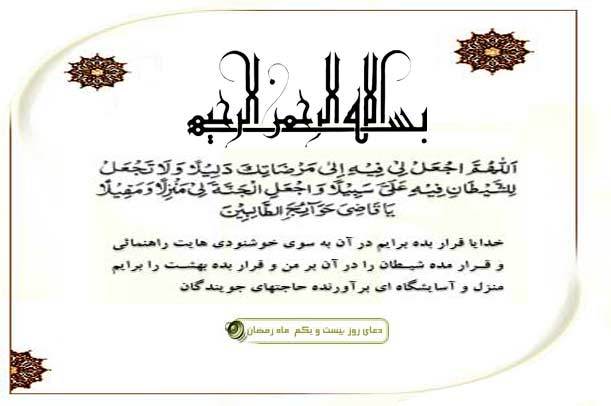 بسم الله الرحمن الرحیم
اَللّهُمَّ اجْعَلْ لِی فِیهِ اِلىٰ مَرْضَاتِكَ دَلِیلًا وَلَا تَجْعَلْ
لِلشَّیْطَانِ فِیهِ عَلَیَّ سَبِیلًا وَاجْعَلِ الْجَنَّةَ لِی مَنْزِلًا وَمَقِیلًا
یَا قَاضِیَ حَوَآئِجِ الطَّالِبِینَ
خدایا قرار بده برایم در آن به سوی خوشنودی هایت راهنمائی
و قرار مده شیطان را در آن بر من و قرار بده بهشت را برایم
منزل و آسایشگاه ای برآورنده حاجتهای جویندگان
دعای روز بیست و یکم ماه رمضان